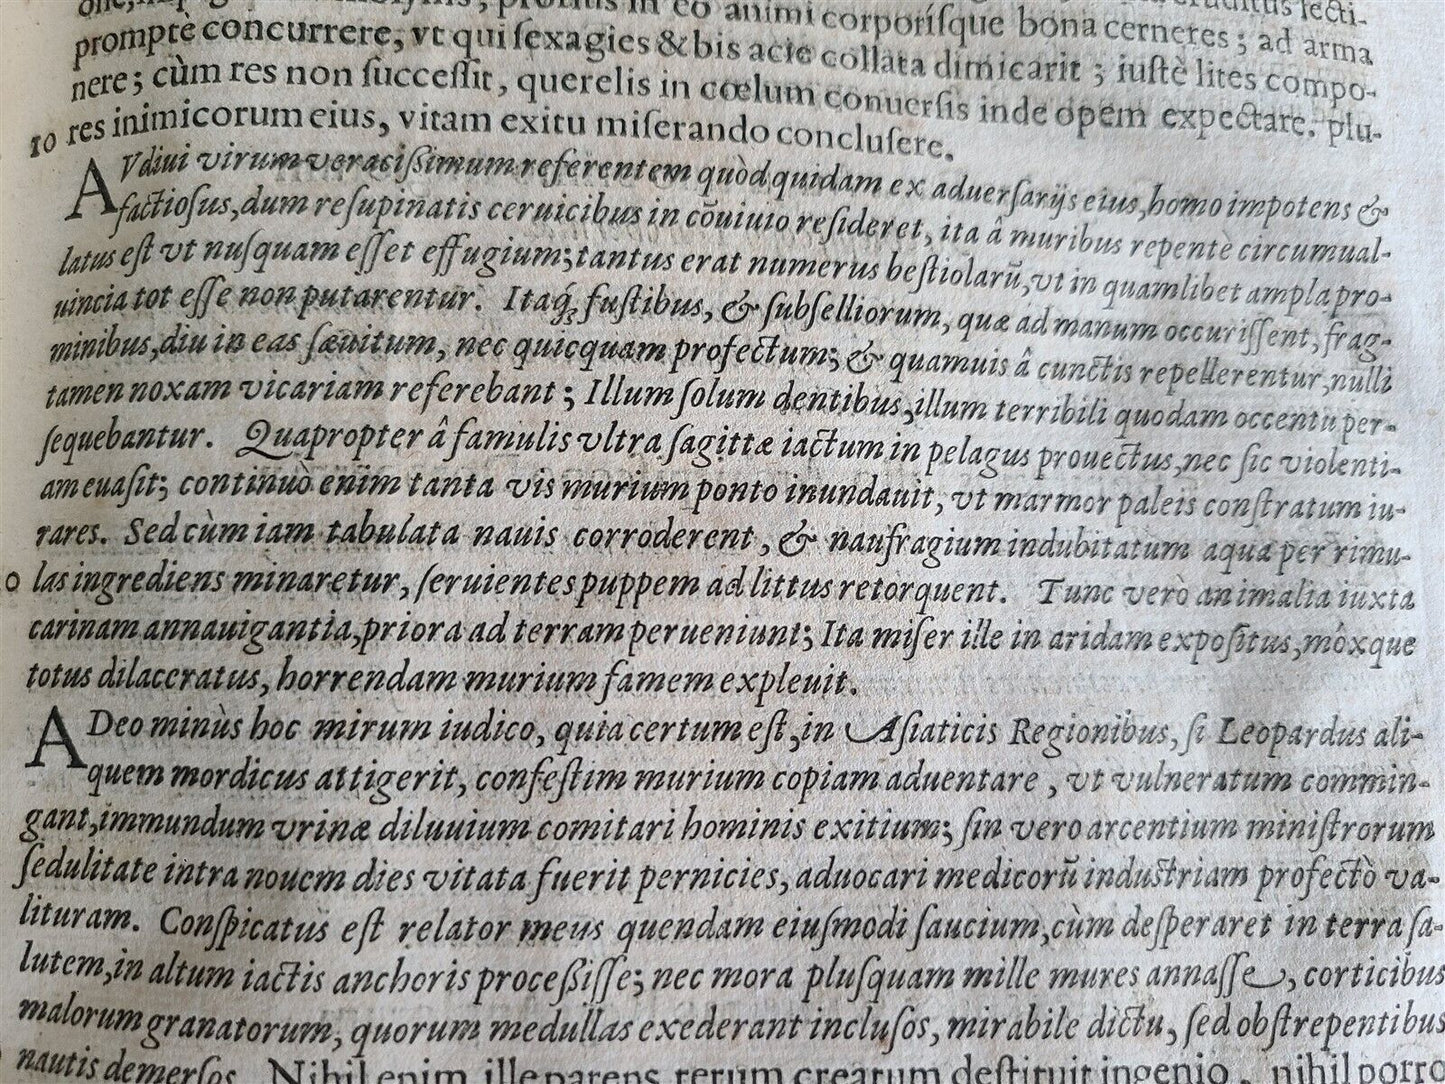 prolius in eo animi corporíſque bona cernetes; ad arma
promptè concurrere, vt qui ſexagies & bis acie collata dimicarit; iuſtè lites compo-
nere; cùm res non ſucceſſit, querelis in cœlum conuerſis inde opem expectare. plu-
10 res inimicorum eius, vitam exitu miſerando concluſere.
AVdiui virum veraciſſimum referentem quòd quidam ex aduerſarijs eius, homo impotens &
factioſus, dum reſupinatis ceruicibus in cõuiuio reſideret, ita â muribus repentè circumual-
latus eſt vt nuſquam eſſet effugium; tantus erat numerus beſtiolarũ, vt in quamlibet ampla pro-
uincia tot eſſe non putarentur. Itaq́ꝫ fuſtibus, & ſubſelliorum, quæ ad manum occuriſſent, frag-
minibus, diu in eas ſæuitum, nec quicquam profectum; & quamuis â cunctis repellerentur, nulli
tamen noxam vicariam referebant; Illum ſolum dentibus, illum terribili quodam occentu per-
ſequebantur. Quapropter â famulis vltra ſagittæ iactum in pelagus prouectus, nec ſic violenti-
am euaſit; continuò enim tanta vis murium ponto inundauit, vt marmor paleis conſtratum iu-
rares. Sed cùm iam tabulata nauis corroderent, & naufragium indubitatum aqua per rimu-
0 las ingrediens minaretur, ſeruientes puppem ad littus retorquent. Tunc verò animalia iuxta
carinam annauigantia, priora ad terram perueniunt; Ita miſer ille in aridam expoſitus, móxque
totus dilaceratus, horrendam murium famem expleuit.
ADeo minùs hoc mirum iudico, quia certum eſt, in Aſiaticis Regionibus, ſi Leopardus ali-
quem mordicus attigerit, confeſtim murium copiam aduentare, vt vulneratum commin-
gant, immundum vrinæ diluuium comitari hominis exitium; ſin vero arcentium miniſtrorum
ſedulitate intra nouem dies vitata fuerit pernicies, aduocari medicorũ induſtriam profectò va-
lituram. Conſpicatus eſt relator meus quendam eiuſmodi ſaucium, cùm deſperaret in terra ſa-
lutem, in altum iactis anchoris proceſſiſſe; nec mora pluſquam mille mures annaſſe, corticibus
malorum granatorum, quorum medullas exederant incluſos, mirabile dictu, ſed obſtrepentibus
nautis demerſos. Nihil enim ille parens rerum creatum deſtituit ingenio, nihil porro